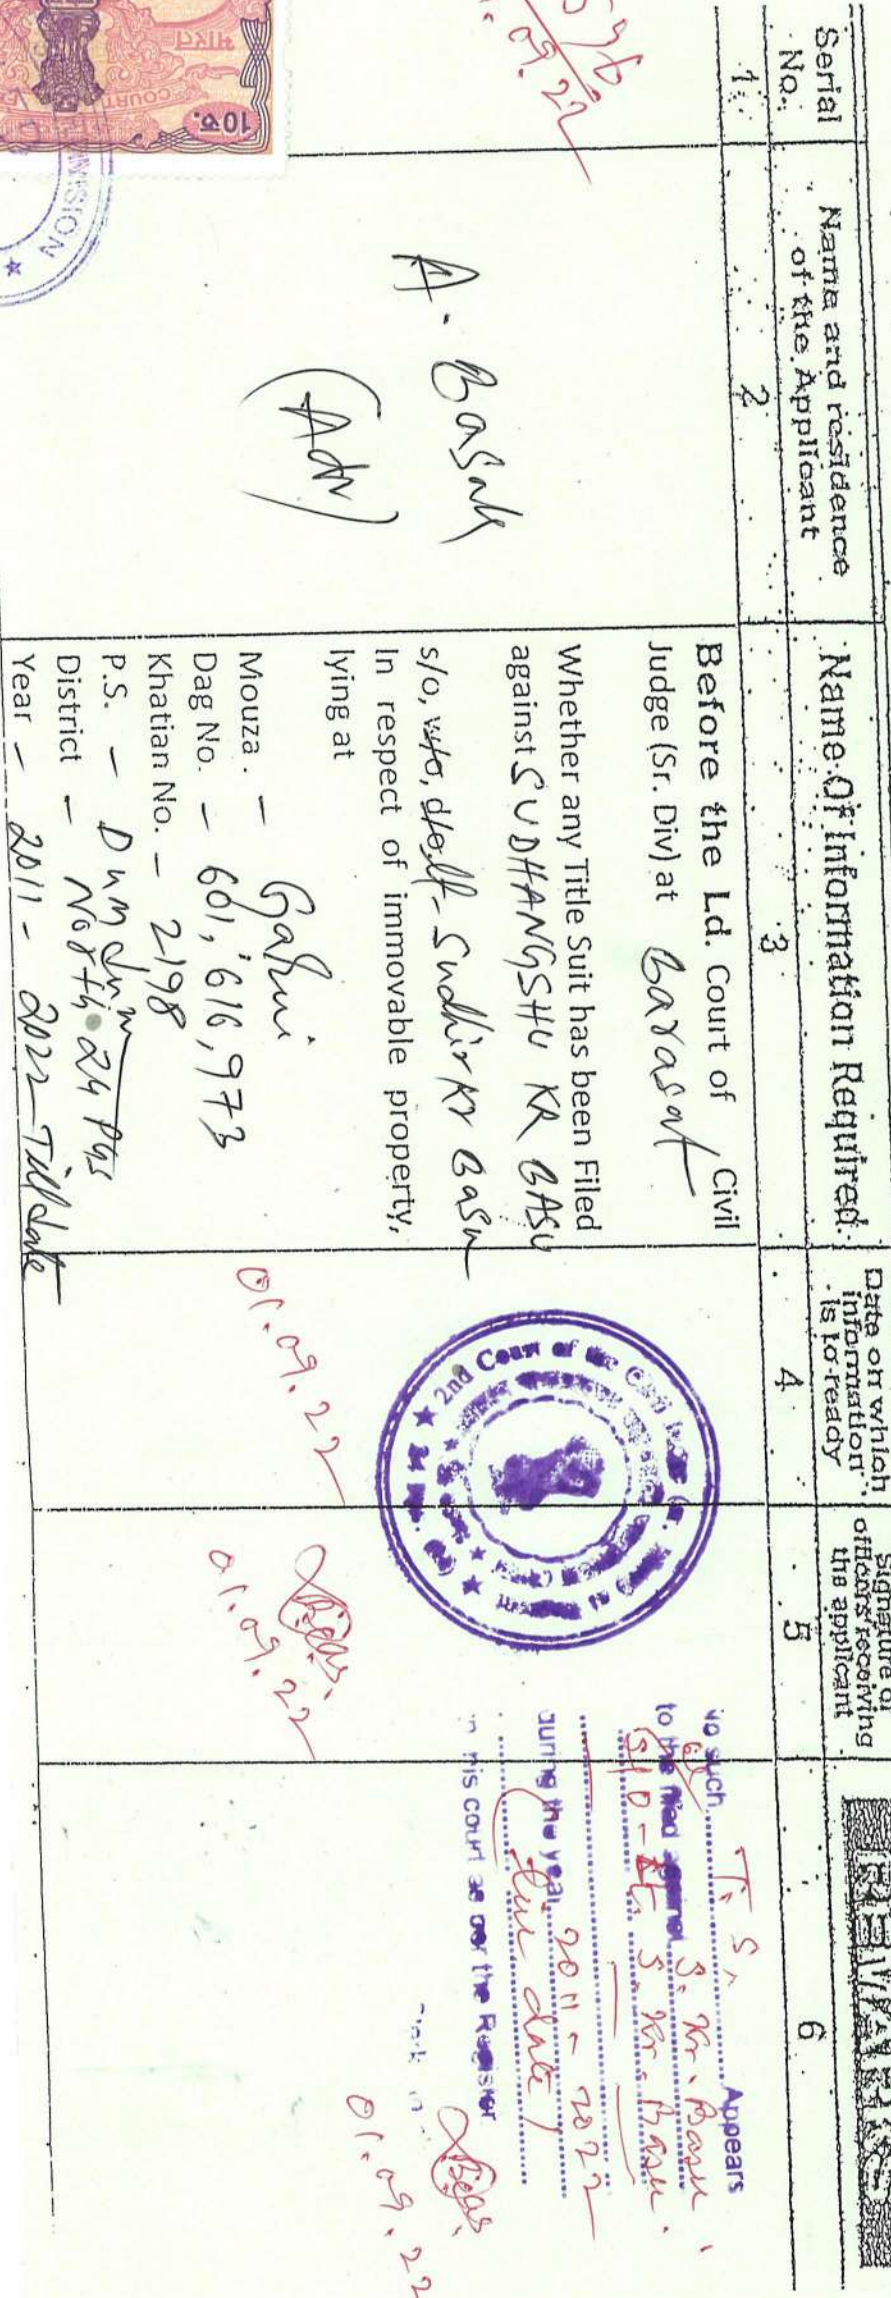 Serial No.
Name and residence of the Applicant
Name Of Information Required.
Date on which information is to ready
Signature of officers receiving the applicant
REMARKS
1
2
3
4
5
6
09.22
10रु.
भारत
COURT
A. Basak
(Adv)
Before the Ld. Court of Civil
Judge (Sr. Div) at Barasat
Whether any Title Suit has been Filed
against SUDHANGSHU KR BASU
s/o, w/o, d/o Lt- Sudhir Kr Basu
In respect of immovable property,
lying at
Mouza. - Gahui
Dag No. - 601, 616, 973
Khatian No. - 2198
P.S. - Dum dum
District - North 24 Pgs
Year - 2011 - 2022 Till date
2nd Court of the Civil
01.09.22
01.09.22
No such T. S. Appears
to be filed against S. Kr. Basu
S/O - Lt. S. Kr. Basu.
during the year 2011 - 2022
(till date)
in this court as per the Register
01.09.22